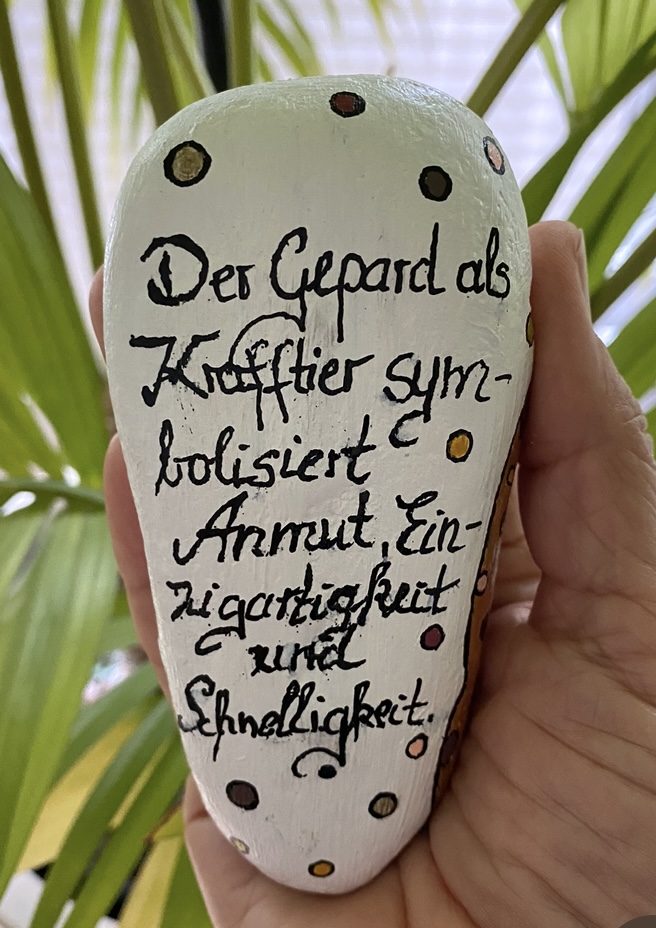 Der Gepard als
Krafttier sym-
bolisiert
Anmut, Ein-
zigartigkeit
und
Schnelligkeit.